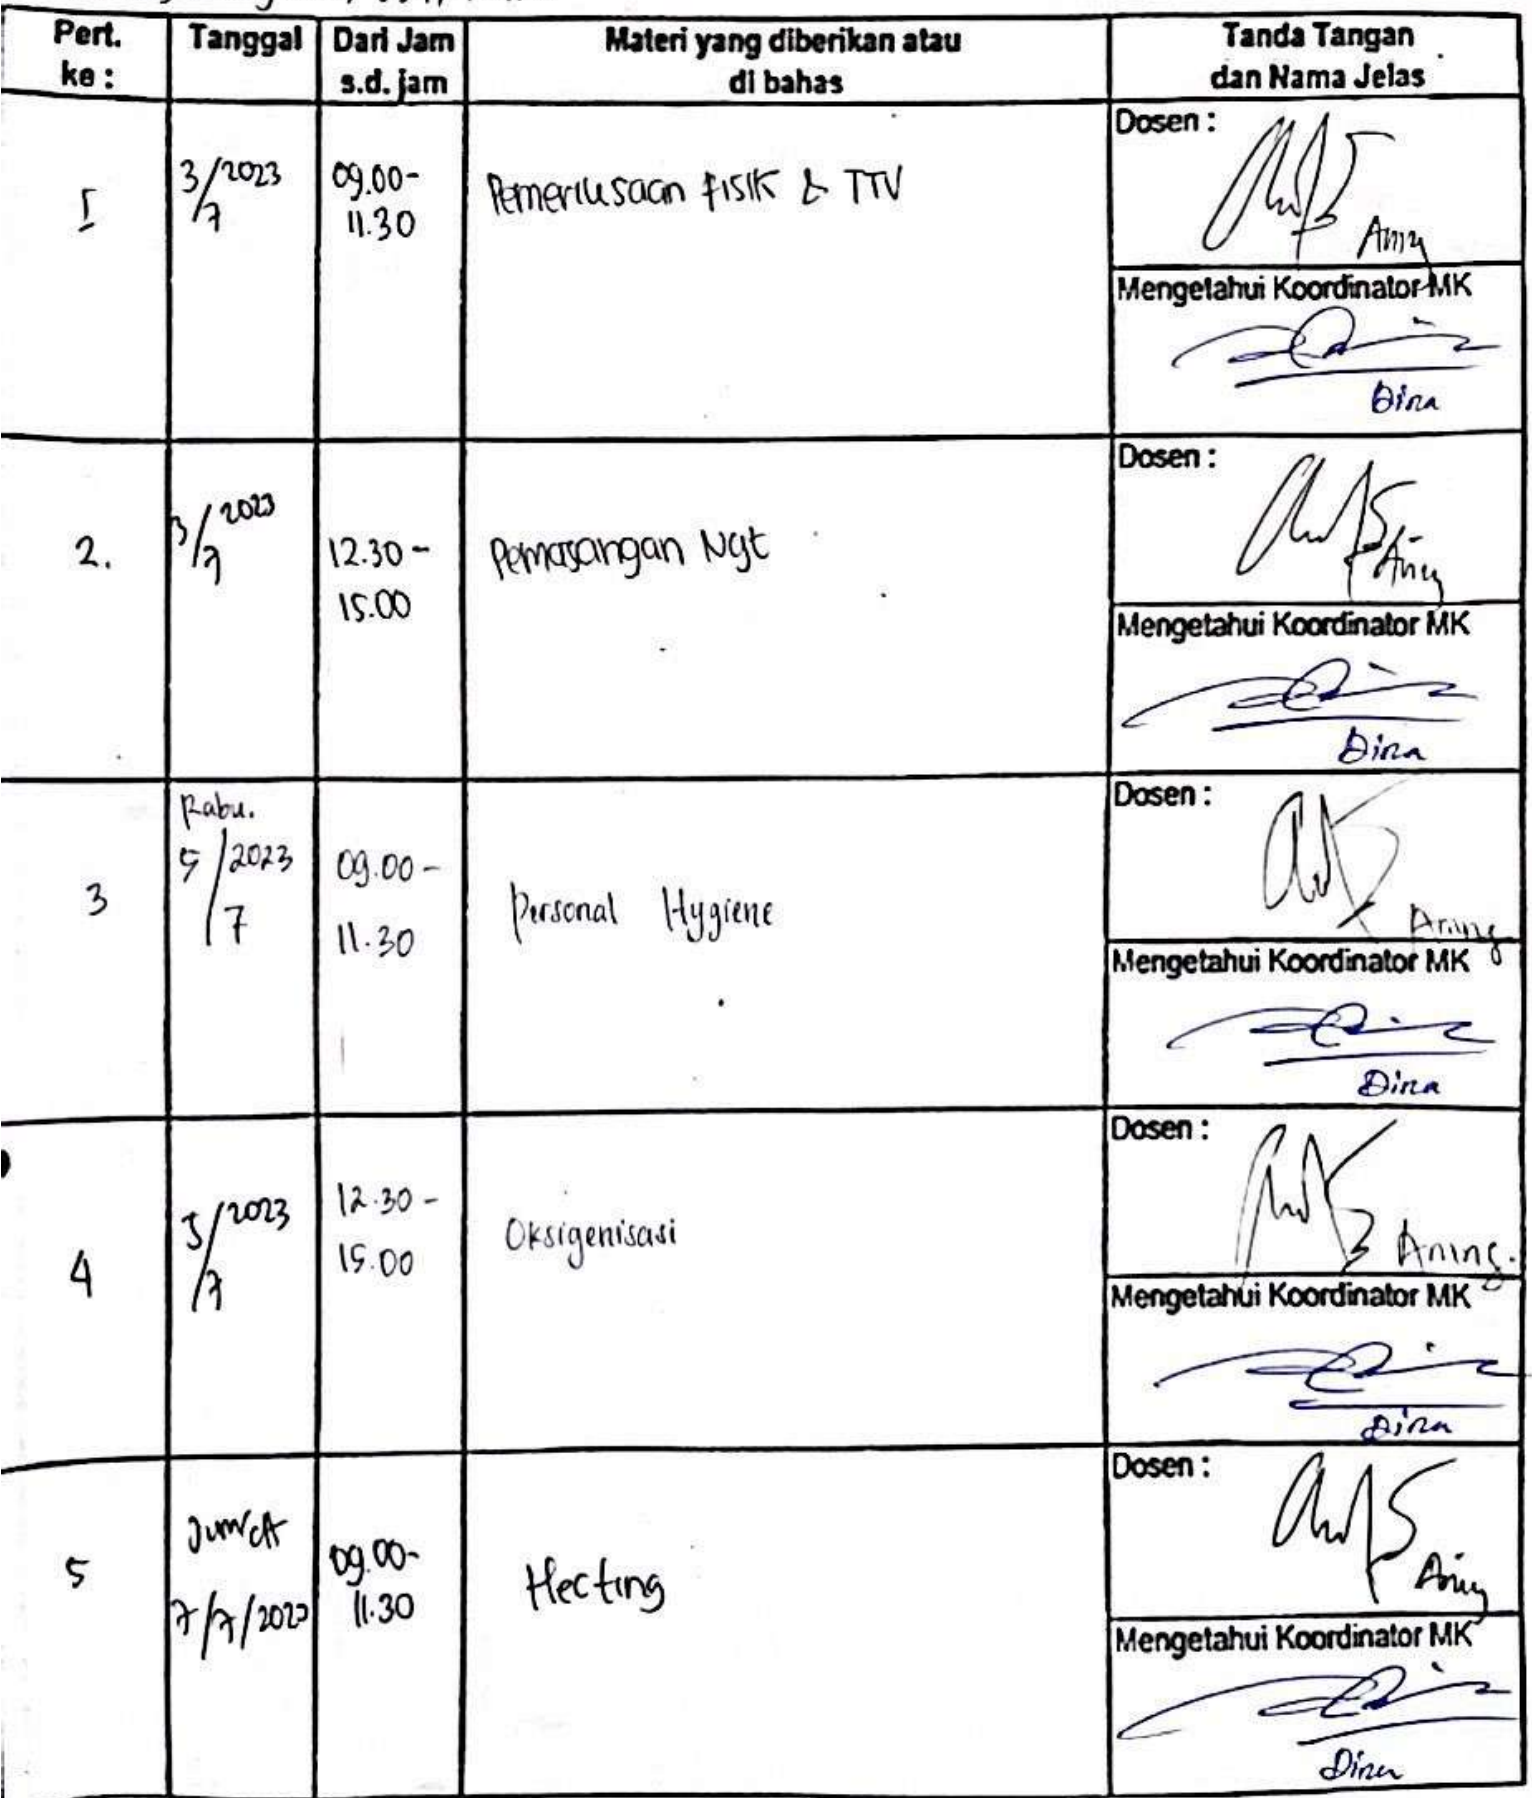 Pert. ke :
Tanggal
Dari Jam s.d. jam
Materi yang diberikan atau di bahas
Tanda Tangan dan Nama Jelas
I
3/7 2023
09.00-
11.30
Pemeriksaan fisik & TTV
Dosen :
Mengetahui Koordinator MK
Dina
2.
3/7 2023
12.30 -
15.00
Pemasangan Ngt
Dosen :
Mengetahui Koordinator MK
Dina
3
Rabu.
5/7 2023
09.00 -
11.30
Personal Hygiene
Dosen :
Aning
Mengetahui Koordinator MK
Dina
4
5/7 2023
12.30 -
15.00
Oksigenisasi
Dosen :
Aning.
Mengetahui Koordinator MK
Dina
5
Jum'at
7/7/2023
09.00-
11.30
Hecting
Dosen :
Mengetahui Koordinator MK
Dina